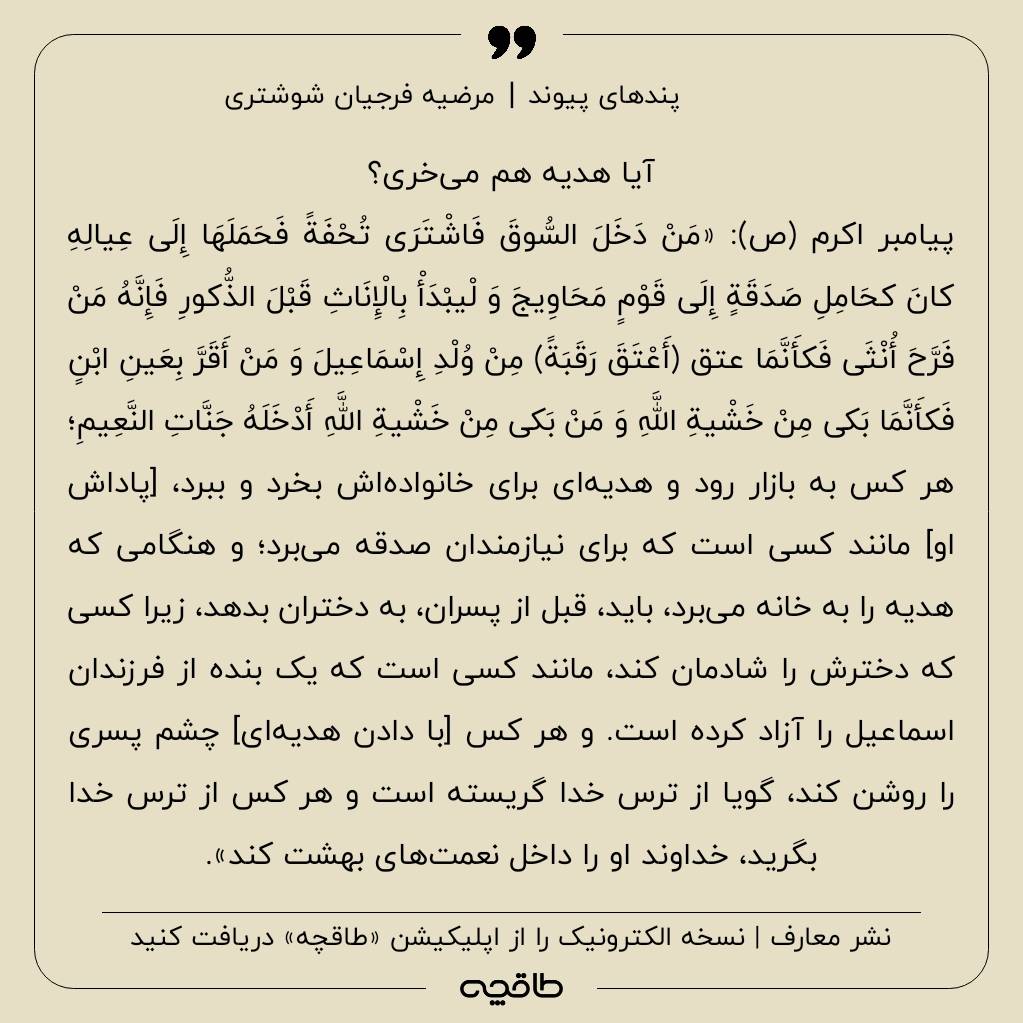 ❟❟
پندهای پیوند | مرضیه فرجیان شوشتری
آیا هدیه هم می‌خری؟
پیامبر اکرم (ص): «مَنْ دَخَلَ السُّوقَ فَاشْتَرَى تُحْفَةً فَحَمَلَهَا إِلَى عِیالِهِ
کانَ کحَامِلِ صَدَقَةٍ إِلَى قَوْمٍ مَحَاوِیجَ وَ لْیبْدَأْ بِالْإِنَاثِ قَبْلَ الذُّکورِ فَإِنَّهُ مَنْ
فَرَّحَ أُنْثَى فَکأَنَّمَا عتق (أَعْتَقَ رَقَبَةً) مِنْ وُلْدِ إِسْمَاعِیلَ وَ مَنْ أَقَرَّ بِعَینِ ابْنٍ
فَکأَنَّمَا بَکى مِنْ خَشْیةِ اللَّهِ وَ مَنْ بَکى مِنْ خَشْیةِ اللَّهِ أَدْخَلَهُ جَنَّاتِ النَّعِیمِ؛
هر کس به بازار رود و هدیه‌ای برای خانواده‌اش بخرد و ببرد، [پاداش
او] مانند کسی است که برای نیازمندان صدقه می‌برد؛ و هنگامی که
هدیه را به خانه می‌برد، باید، قبل از پسران، به دختران بدهد، زیرا کسی
که دخترش را شادمان کند، مانند کسی است که یک بنده از فرزندان
اسماعیل را آزاد کرده است. و هر کس [با دادن هدیه‌ای] چشم پسری
را روشن کند، گویا از ترس خدا گریسته است و هر کس از ترس خدا
بگرید، خداوند او را داخل نعمت‌های بهشت کند».
نشر معارف | نسخه الکترونیک را از اپلیکیشن «طاقچه» دریافت کنید
طاقچه